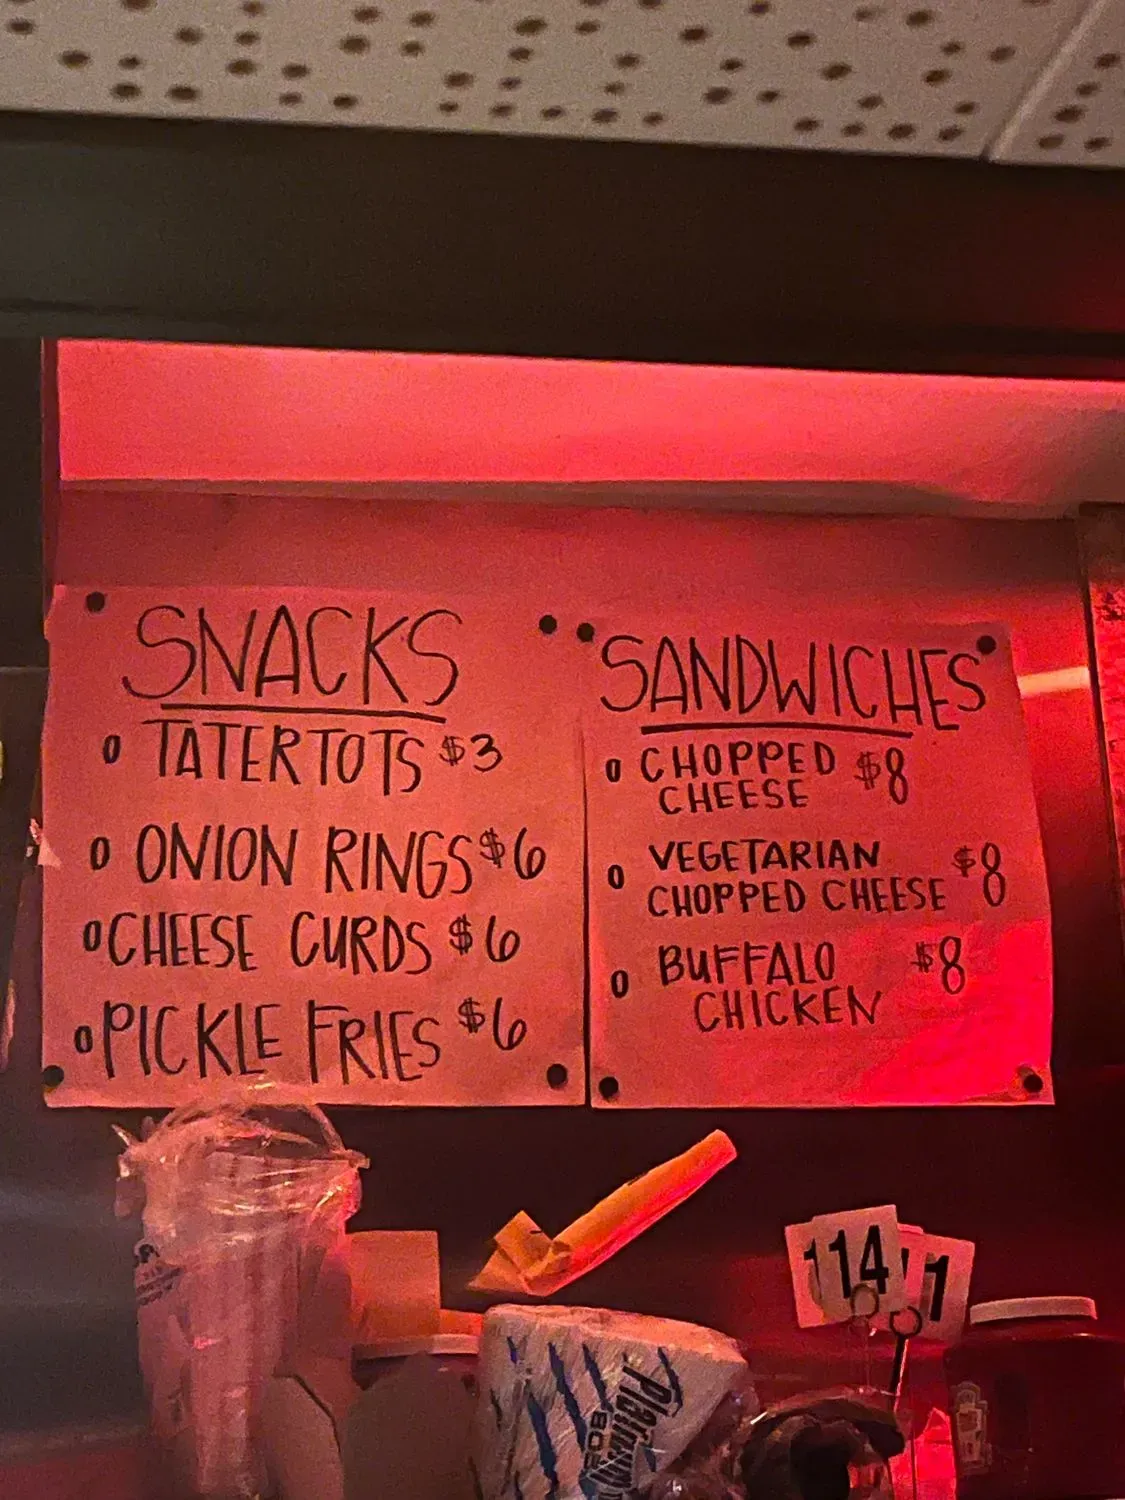 SNACKS
0 TATERTOTS $3
0 ONION RINGS $6
0 CHEESE CURDS $6
0 PICKLE FRIES $6
SANDWICHES
0 CHOPPED $8
CHEESE
0 VEGETARIAN $8
CHOPPED CHEESE
0 BUFFALO $8
CHICKEN
114
Platinum
BOB